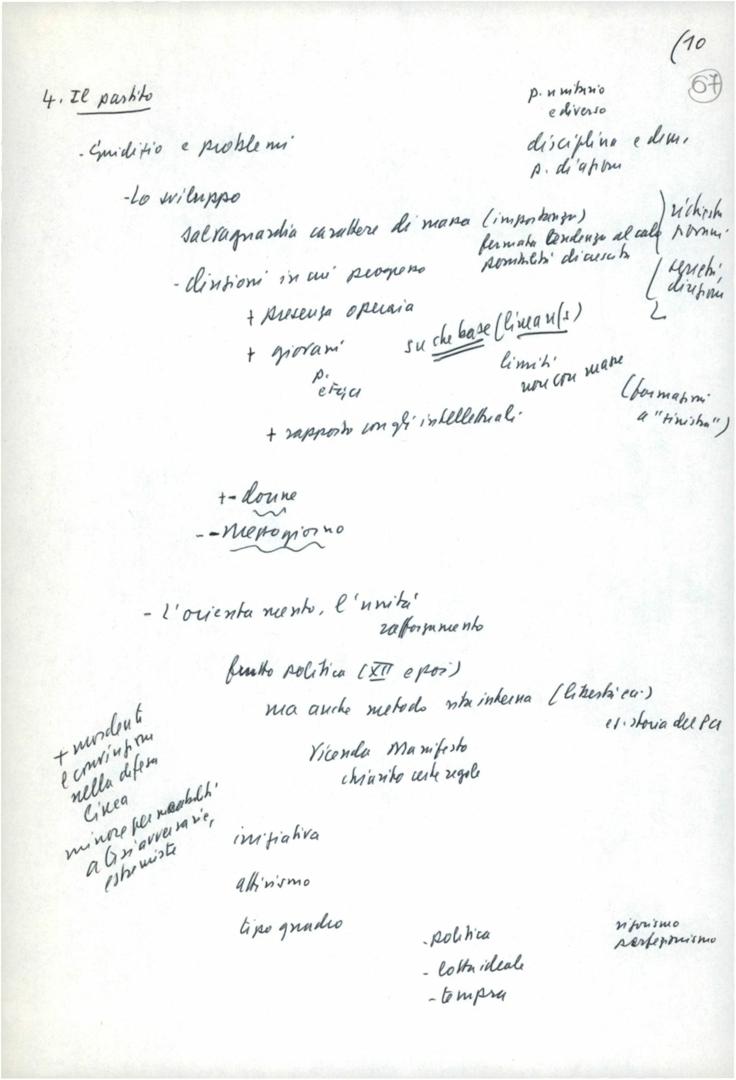 (10
67
4. Il partito
p. unitario
e diverso
- Giudizio e problemi
disciplina e dem.
p. di azione
- Lo sviluppo
salvaguardia carattere di massa (importanza)
fermata tendenza al calo
possibilità di crescita
richiesta
- direzioni in cui progresso
segreti,
direzioni
+ presenza operaia
+ giovani
su che base (linea n/s)
p.
limiti
non con masse
(formazioni
a "sinistra")
+ rapporto con gli intellettuali
+- donne
-- Mezzogiorno
- L'orientamento, l'unità
rafforzamento
frutto politica (XII e poi)
ma anche metodo vita interna
es. storia del PCI
Vicenda Manifesto
chiarito certe regole
+ mordenti
e convinzioni
nella difesa
linea
minore permeabilità
a tesi avversarie,
estremiste
iniziativa
attivismo
tipo quadro
- politica
- lotta ideale
- tempra
rigorismo
perfezionismo